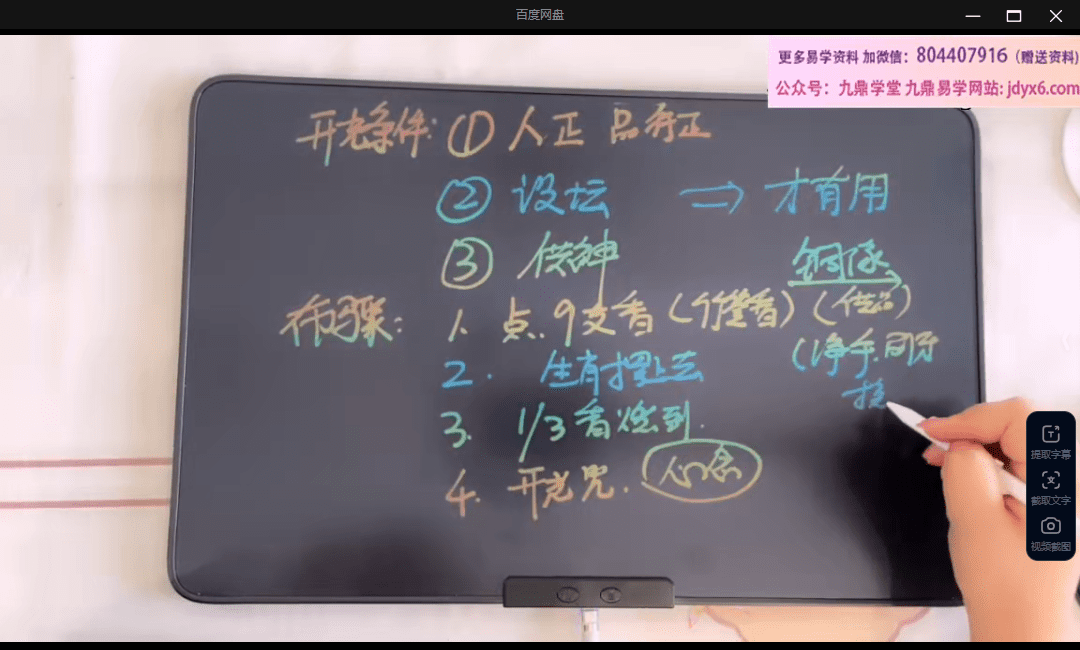 百度网盘
更多易学资料 加微信：804407916（赠送资料)
公众号：九鼎学堂 九鼎易学网站: jdyx6.com
开光条件: ① 人正 品行正
② 设坛 => 才有用
③ 供神
布骤: 1. 点.9支香 (竹签香) (供品)
2. 生肖摆上去 (净手.同牙
3. 1/3香燃到.
4. 开光咒. 心念
提取字幕
截取文字
视频截图